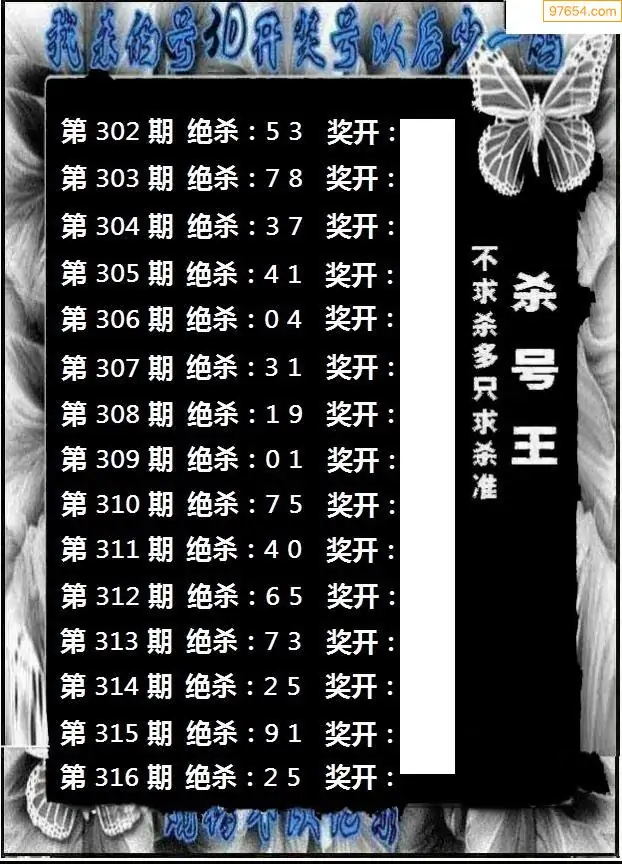 97654.com
我来的号3D开奖号以后少一码
第 302 期 绝杀：5 3 奖开：
第 303 期 绝杀：7 8 奖开：
第 304 期 绝杀：3 7 奖开：
第 305 期 绝杀：4 1 奖开：
第 306 期 绝杀：0 4 奖开：
第 307 期 绝杀：3 1 奖开：
第 308 期 绝杀：1 9 奖开：
第 309 期 绝杀：0 1 奖开：
第 310 期 绝杀：7 5 奖开：
第 311 期 绝杀：4 0 奖开：
第 312 期 绝杀：6 5 奖开：
第 313 期 绝杀：7 3 奖开：
第 314 期 绝杀：2 5 奖开：
第 315 期 绝杀：9 1 奖开：
第 316 期 绝杀：2 5 奖开：
杀号王
不求杀多只求杀准